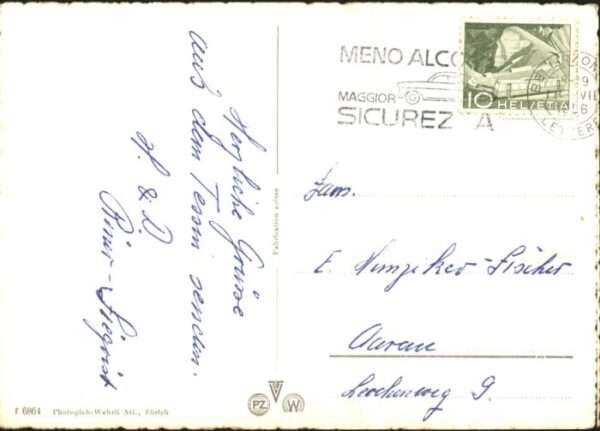 Herzliche Grüsse
aus dem Tessin senden.
H. & D.
Riner-Siegrist
MENO ALCO
MAGGIOR
SICUREZ A
10 HELVETIA
BELLINZON
LETTERE
Fam.
E. Hunziker-Fischer
Aarau
Lerchenweg 9.
Fabrication suisse
PZ W
f 6864 Photoglob-Wehrli AG., Zürich